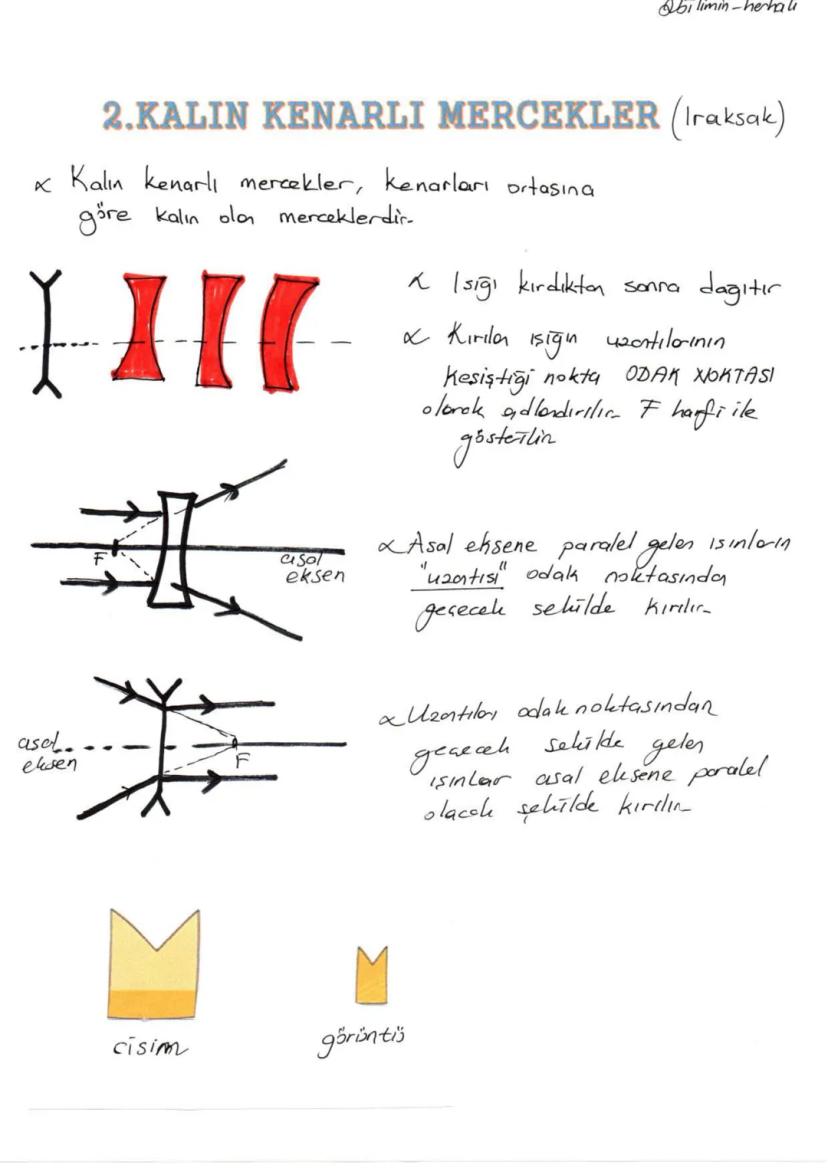 @bilimin-herhali
2.KALIN KENARLI MERCEKLER (Iraksak)
∝ Kalın kenarlı mercekler, kenarları ortasına
göre kalın olan merceklerdir.
∝ Işığı kırdıktan sonra dağıtır
∝ Kırılan ışığın uzantılarının
kesiştiği nokta ODAK NOKTASI
olarak adlandırılır. F harfi ile
gösterilir.
F
asal
eksen
∝ Asal eksene paralel gelen ışınların
"uzantısı" odak noktasından
geçecek şekilde kırılır.
asal
eksen
F
∝ Uzantıları odak noktasından
geçecek şekilde gelen
ışınlar asal eksene paralel
olacak şekilde kırılır.
cisim
görüntü